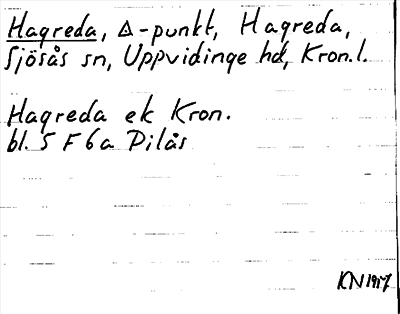 Hagreda, △-punkt, Hagreda,
Sjösås sn, Uppvidinge hd, Kron.l.
Hagreda ek Kron.
bl. 5 F 6a Dilås
KN 1957